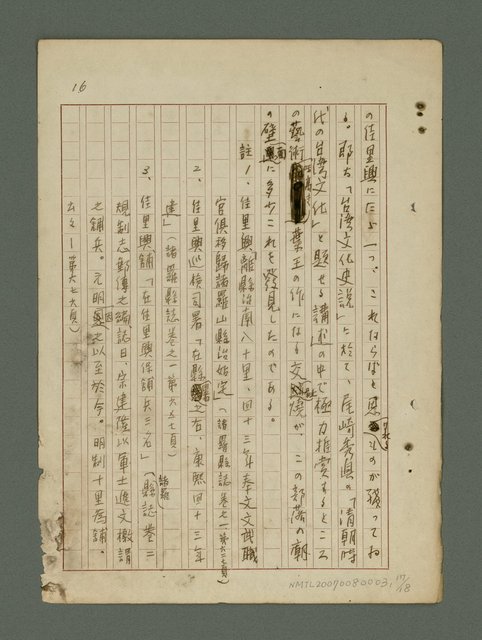 16
の佳里興にたよつて、これならばと思はれるものが殘つてお
る。即ち「台湾文化史説」に於て、尾崎秀真の「清朝時
代の台湾文化」と題せる講述の中で極力推賞するところ
の藝術 葉王の作になる交趾燒が、この部落の廟
の壁面に多少これを發見したのである。
註1、佳里興「離縣治南八十里、四十三年奉文文武職
官俱移歸諸羅山縣治始定」(諸羅縣誌卷之一第六二七頁)
2、佳里興巡檢司署「在縣署之右、康熙四十三年
建」(諸羅縣誌卷之一第六五七頁)
3、佳里興舖「在佳里興保舖兵三名」(諸羅縣誌卷二
規制志郵傳之端誌曰、宋建隆以軍士遞文檄謂
之舖兵。元明因之以至於今。明制十里為舖。
云云-第六七六頁)
NMTL20070080003, 17/18